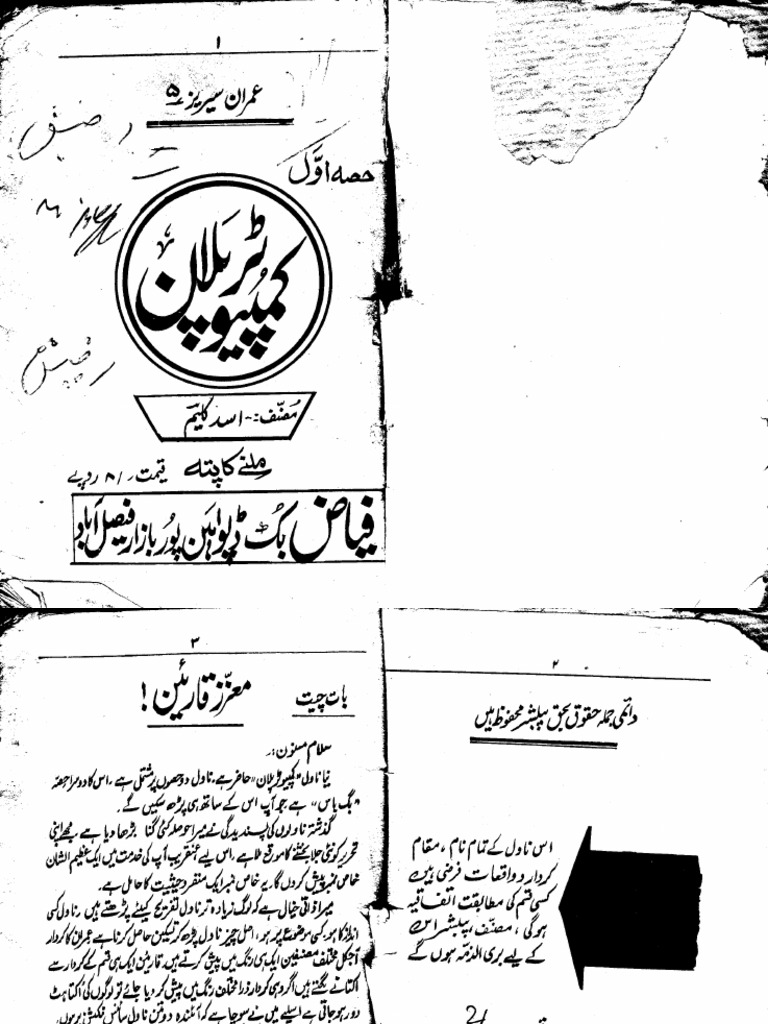 ۱
عمران سیریز ۵
حصہ اوّل
کمپیوٹر پلان
مصنّف:- اسد کلیم
ملنے کا پتہ
قیمت ۸/- روپے
فیاض بک ڈپو امین پور بازار فیصل آباد
۲
دائمی جملہ حقوق بحق پبلیشر محفوظ ہیں
اس ناول کے تمام نام، مقام
کردار و واقعات فرضی ہیں
کسی قسم کی مطابقت اتفاقیہ
ہوگی، مصنف، پبلیشر اس
کے لیے بری الذمہ ہوں گے
۳
بات چیت
معزّز قارئین!
سلام مسنون:-
نیا ناول "کمپیوٹر پلان" حاضر ہے۔ ناول دو حصوں پر مشتمل ہے۔ اس کا دوسرا حصہ
"بگ باس" ہے جو آپ اس کے ساتھ ہی پڑھ سکیں گے۔
گذشتہ ناولوں کی پسندیدگی نے میرا حوصلہ کئی گنا بڑھا دیا ہے۔ مجھے اپنی
تحریر کو نئی جلا بخشنے کا موقع ملا ہے۔ اس لیے عنقریب آپ کی خدمت میں ایک عظیم الشان
خاص نمبر پیش کروں گا۔ یہ خاص نمبر ایک منفرد حیثیت کا حامل ہے۔
میرا ذاتی خیال ہے کہ لوگ زیادہ تر ناول تفریح کیلئے پڑھتے ہیں۔ ناول کسی
انداز کا ہو، کسی موضوع پر ہو، اصل چیز ناول پڑھ کر تسکین حاصل کرنا ہے عمران کا کردار
آجکل مختلف مصنفین ایک ہی رنگ میں پیش کرتے ہیں۔ قارئین ایک ہی قسم کے کردار سے
اکتانے لگتے ہیں اگر وہی کردار ذرا مختلف رنگ میں پیش کر دیا جائے تو لوگوں کی اکتاہٹ
دور ہو جاتی ہے اسلیے میں نے سوچا ہے کہ آئندہ دو تین ناول سائنس فکشن پر ہوں۔